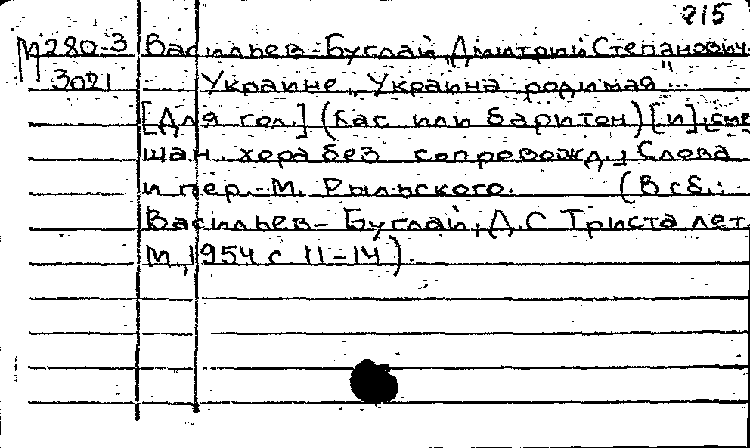 815
М280-3 Васильев-Буглай, Дмитрий Степанович.
3021 Украине. "Украина родимая"...
[Для гол.] (бас или баритон) [и] сме
шан. хора без сопровожд., Слова
и пер. М. Рыльского. (В сб.:
Васильев-Буглай, Д.С Триста лет.
М., 1954 с 11-14).